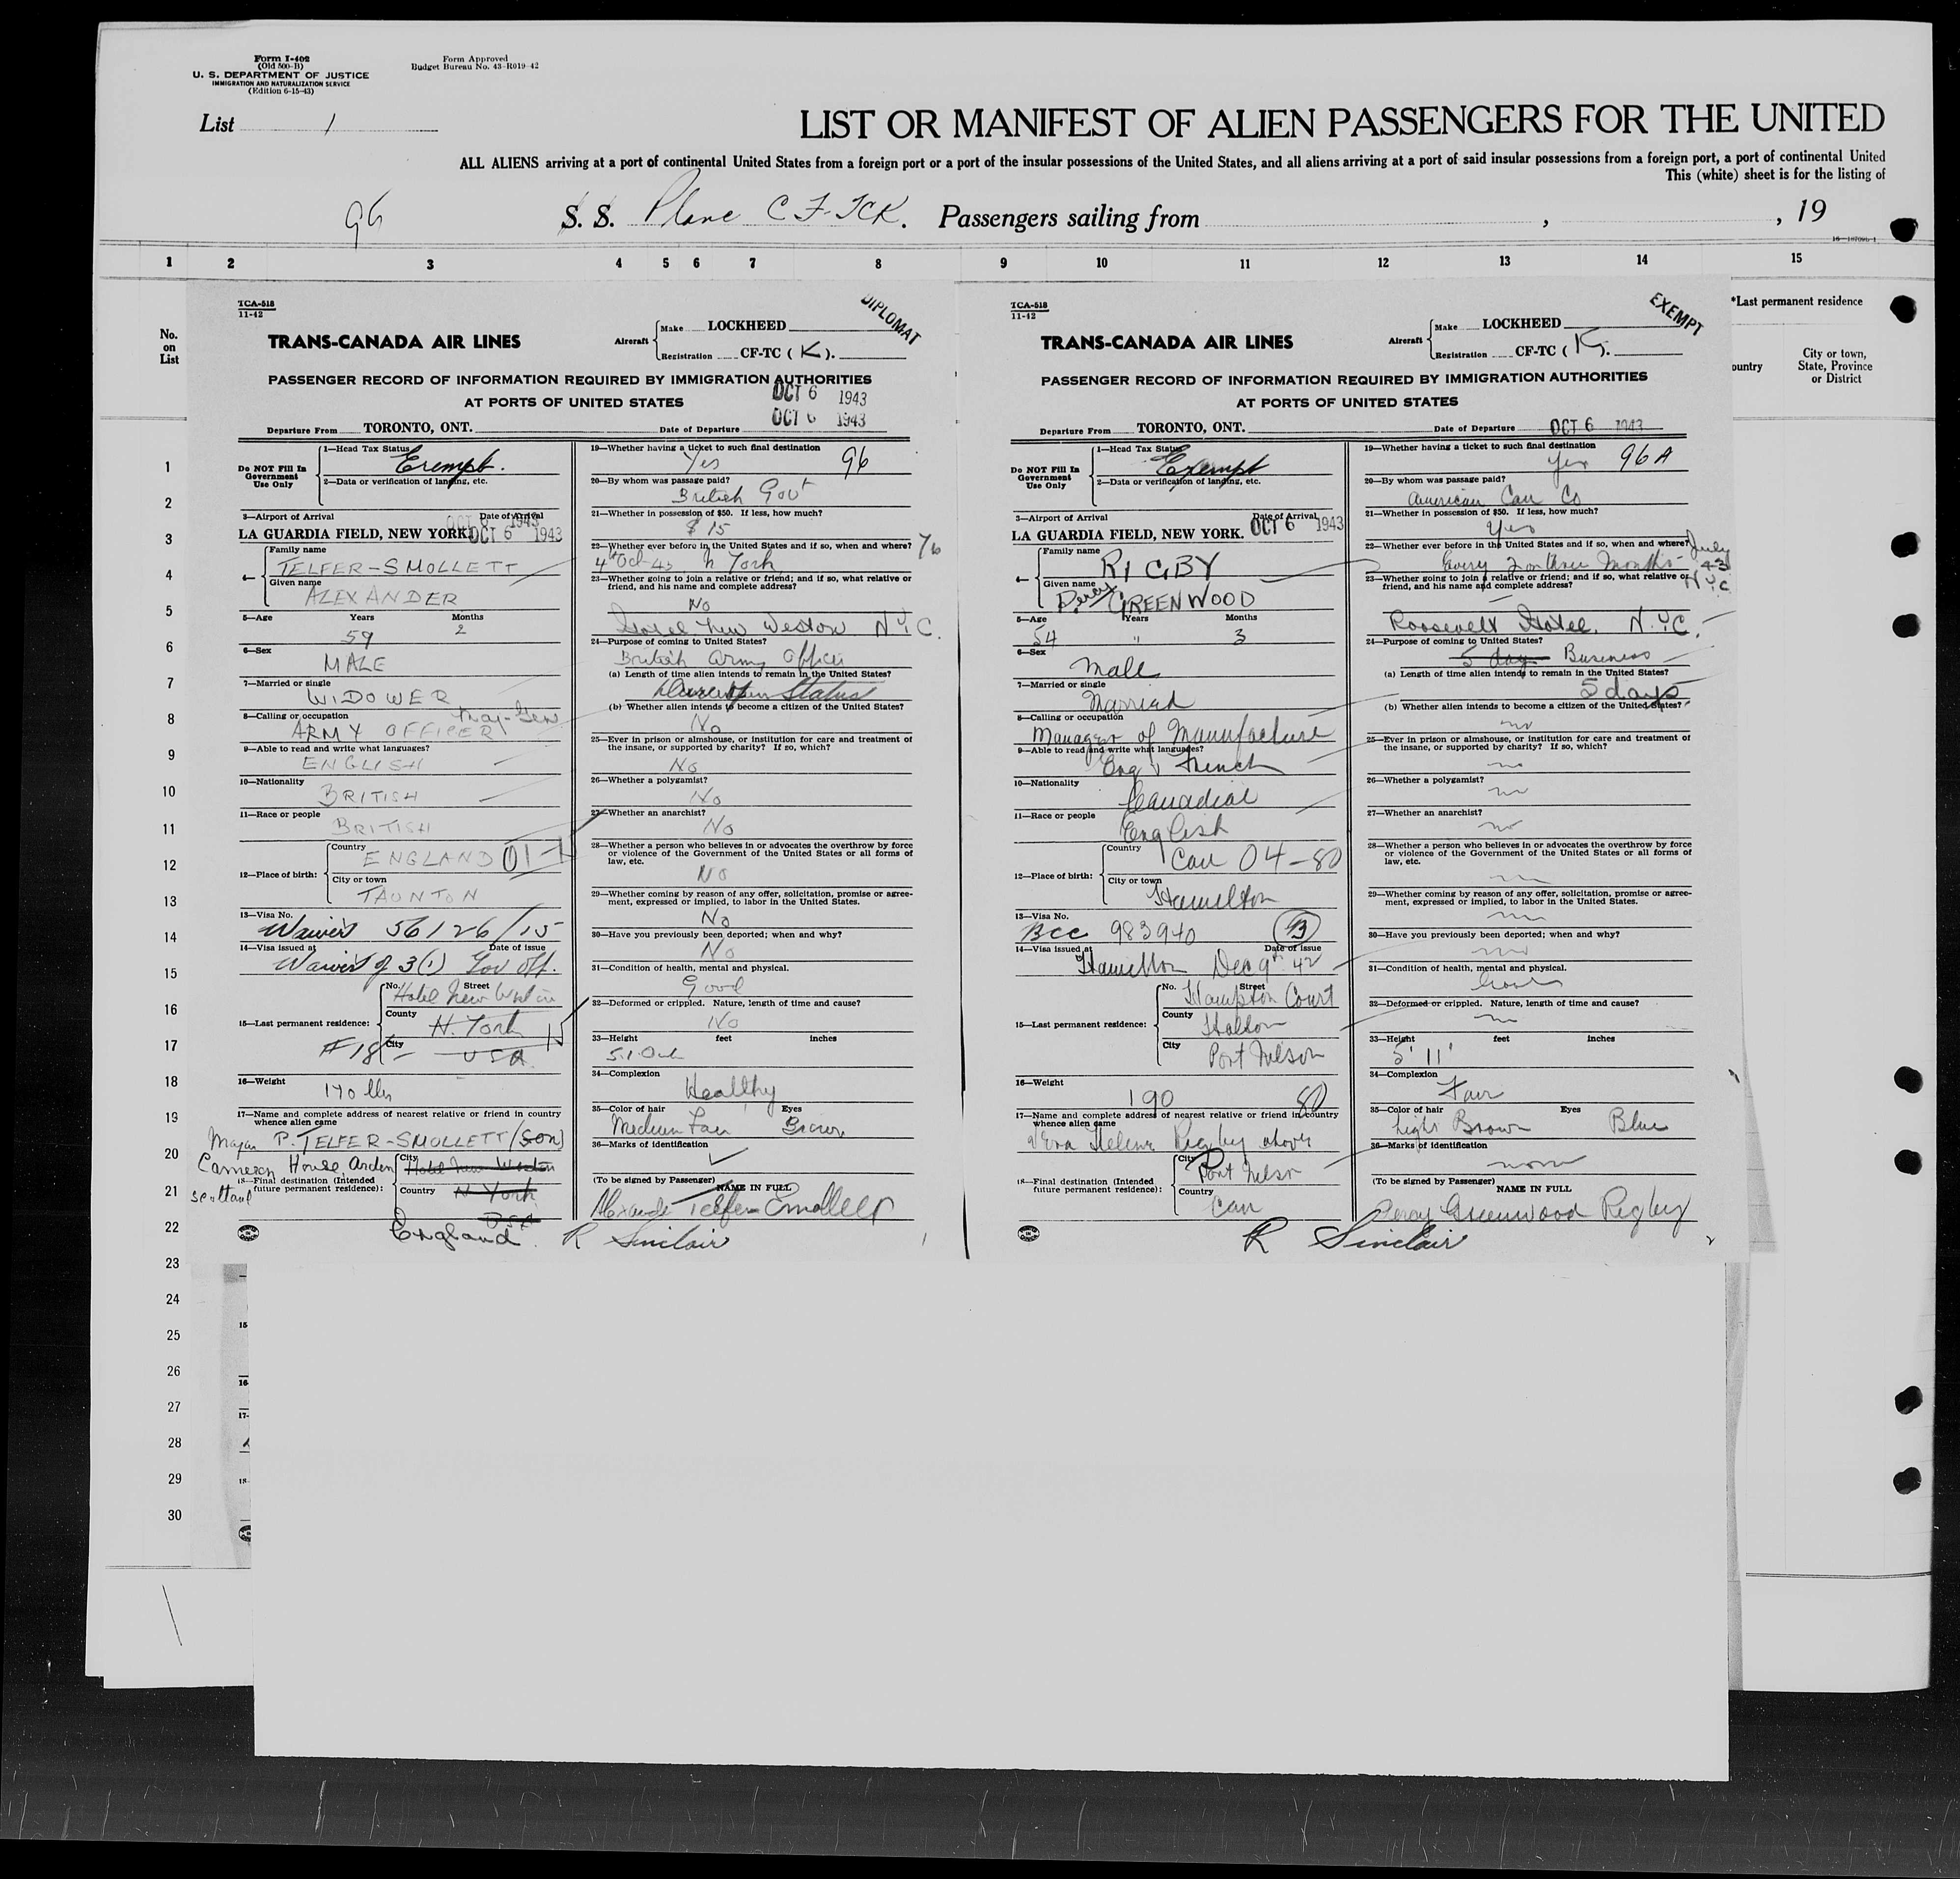 Form I-402
(Old 500-B)
U. S. DEPARTMENT OF JUSTICE
IMMIGRATION AND NATURALIZATION SERVICE
(Edition 6-15-43)
Form Approved
Budget Bureau No. 43-R019-42
List 1
LIST OR MANIFEST OF ALIEN PASSENGERS FOR THE UNITED
ALL ALIENS arriving at a port of continental United States from a foreign port or a port of the insular possessions of the United States, and all aliens arriving at a port of said insular possessions from a foreign port, a port of continental United
This (white) sheet is for the listing of
96 S. S. Plane CF-TCK. Passengers sailing from , , 19
1 2 3 4 5 6 7 8 9 10 11 12 13 14 15
No.
on
List
*Last permanent residence
ountry
City or town,
State, Province
or District
1
2
3
4
5
6
7
8
9
10
11
12
13
14
15
16
17
18
19
20
21
22
23
24
25
26
27
28
29
30
TCA-518
11-42
DIPLOMAT
TRANS-CANADA AIR LINES
Aircraft Make LOCKHEED
Registration CF-TC (K).
PASSENGER RECORD OF INFORMATION REQUIRED BY IMMIGRATION AUTHORITIES
AT PORTS OF UNITED STATES
OCT 6 1943
OCT 6 1943
Departure From TORONTO, ONT. Date of Departure
Do NOT Fill In
Government
Use Only
1—Head Tax Status
Exempt.
2—Data or verification of landing, etc.
3—Airport of Arrival Date of Arrival
OCT 6 1943
LA GUARDIA FIELD, NEW YORK. OCT 6 1943
4— Family name
TELFER-SMOLLETT
Given name
ALEXANDER
5—Age Years Months
59 2
6—Sex
MALE
7—Married or single
WIDOWER
8—Calling or occupation Maj-Gen
ARMY OFFICER
9—Able to read and write what languages?
ENGLISH
10—Nationality
BRITISH
11—Race or people
BRITISH
12—Place of birth: Country
ENGLAND 01-1
City or town
TAUNTON
13—Visa No.
Waiver 56126/15
14—Visa issued at Date of issue
Waiver of 3(1) Gov Off.
15—Last permanent residence: No. Street
Hotel New Weston
County
N. York
City
USA
16—Weight
170 lbs
17—Name and complete address of nearest relative or friend in country
whence alien came
Major P. TELFER-SMOLLETT (SON)
Cameron House Arden
Scotland
18—Final destination (Intended
future permanent residence):
City Hotel New Weston
Country N York
USA
England
19—Whether having a ticket to such final destination
Yes 96
20—By whom was passage paid?
British Govt
21—Whether in possession of $50. If less, how much?
$ 15
22—Whether ever before in the United States and if so, when and where?
4 Oct 43 N York
23—Whether going to join a relative or friend; and if so, what relative or
friend, and his name and complete address?
No
Hotel New Weston N.Y.C.
24—Purpose of coming to United States?
British Army Officer
(a) Length of time alien intends to remain in the United States?
Status
(b) Whether alien intends to become a citizen of the United States?
No
25—Ever in prison or almshouse, or institution for care and treatment of
the insane, or supported by charity? If so, which?
No
26—Whether a polygamist?
No
27—Whether an anarchist?
No
28—Whether a person who believes in or advocates the overthrow by force
or violence of the Government of the United States or all forms of
law, etc.
No
29—Whether coming by reason of any offer, solicitation, promise or agree-
ment, expressed or implied, to labor in the United States.
No
30—Have you previously been deported; when and why?
No
31—Condition of health, mental and physical.
Good
32—Deformed or crippled. Nature, length of time and cause?
No
33—Height feet inches
34—Complexion
Healthy
35—Color of hair Eyes
Medium Fair Brown
36—Marks of identification
(To be signed by Passenger) NAME IN FULL
Alexander Telfer-Smollett
R Sinclair
TCA-518
11-42
EXEMPT
TRANS-CANADA AIR LINES
Aircraft Make LOCKHEED
Registration CF-TC (K).
PASSENGER RECORD OF INFORMATION REQUIRED BY IMMIGRATION AUTHORITIES
AT PORTS OF UNITED STATES
Departure From TORONTO, ONT. Date of Departure OCT 6 1943
Do NOT Fill In
Government
Use Only
1—Head Tax Status
Exempt
2—Data or verification of landing, etc.
3—Airport of Arrival Date of Arrival
LA GUARDIA FIELD, NEW YORK. OCT 6 1943
4— Family name
RIGBY
Given name
Percy GREENWOOD
5—Age Years Months
54 " 3
6—Sex
Male
7—Married or single
Married
8—Calling or occupation
Manager of Manufacture
9—Able to read and write what languages?
Eng & French
10—Nationality
Canadian
11—Race or people
English
12—Place of birth: Country
Can 04-80
City or town
Hamilton
13—Visa No.
BCC 983940 B
14—Visa issued at Date of issue
Hamilton Dec 9th 42
15—Last permanent residence: No. Street
Hampton Court
County
Halton
City
Port Nelson
16—Weight
190 80
17—Name and complete address of nearest relative or friend in country
whence alien came
Vera Helena Rigby above
18—Final destination (Intended
future permanent residence):
City Port Nelson
Country
Can
19—Whether having a ticket to such final destination
Yes 96A
20—By whom was passage paid?
American Can Co
21—Whether in possession of $50. If less, how much?
Yes
22—Whether ever before in the United States and if so, when and where?
Every 2 or three Months July 43 N.Y.C
23—Whether going to join a relative or friend; and if so, what relative or
friend, and his name and complete address?
Roosevelt Hotel. N.Y.C.
24—Purpose of coming to United States?
5 day Business
(a) Length of time alien intends to remain in the United States?
5 days
(b) Whether alien intends to become a citizen of the United States?
no
25—Ever in prison or almshouse, or institution for care and treatment of
the insane, or supported by charity? If so, which?
no
26—Whether a polygamist?
no
27—Whether an anarchist?
no
28—Whether a person who believes in or advocates the overthrow by force
or violence of the Government of the United States or all forms of
law, etc.
no
29—Whether coming by reason of any offer, solicitation, promise or agree-
ment, expressed or implied, to labor in the United States.
no
30—Have you previously been deported; when and why?
no
31—Condition of health, mental and physical.
Good
32—Deformed or crippled. Nature, length of time and cause?
no
33—Height feet inches
5' 11"
34—Complexion
Fair
35—Color of hair Eyes
Light Brown Blue
36—Marks of identification
none
(To be signed by Passenger)
NAME IN FULL
Percy Greenwood Rigby
R Sinclair